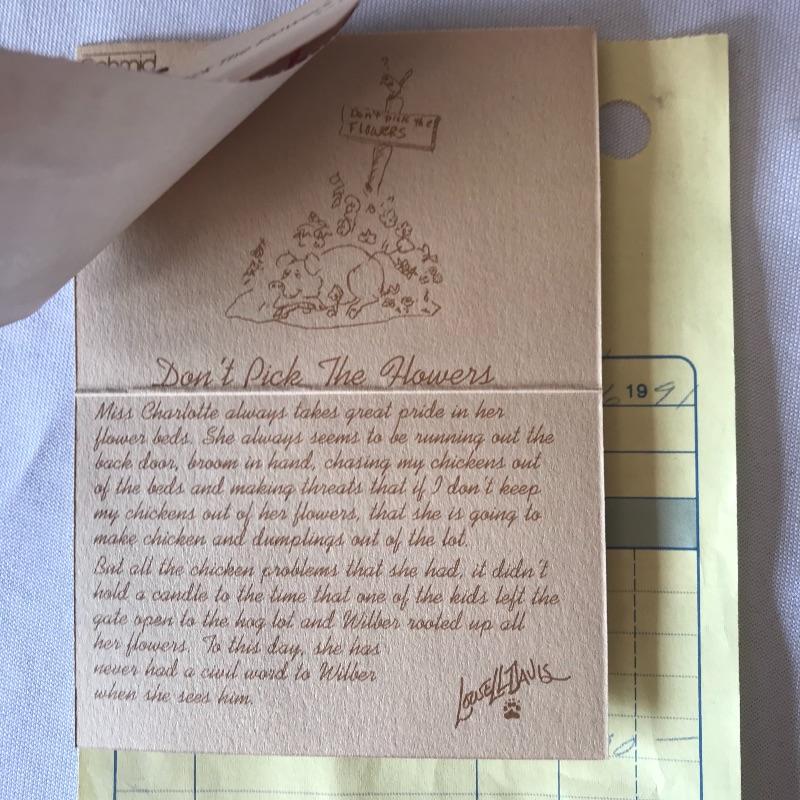 Schmid
Don't pick the
FLOWERS
Don't Pick The Flowers
Miss Charlotte always takes great pride in her
flower beds. She always seems to be running out the
back door, broom in hand, chasing my chickens out
of the beds and making threats that if I don't keep
my chickens out of her flowers, that she is going to
make chicken and dumplings out of the lot.
But all the chicken problems that she had, it didn't
hold a candle to the time that one of the kids left the
gate open to the hog lot and Wilber rooted up all
her flowers. To this day, she has
never had a civil word to Wilber
when she sees him.
Lowell Davis
1991